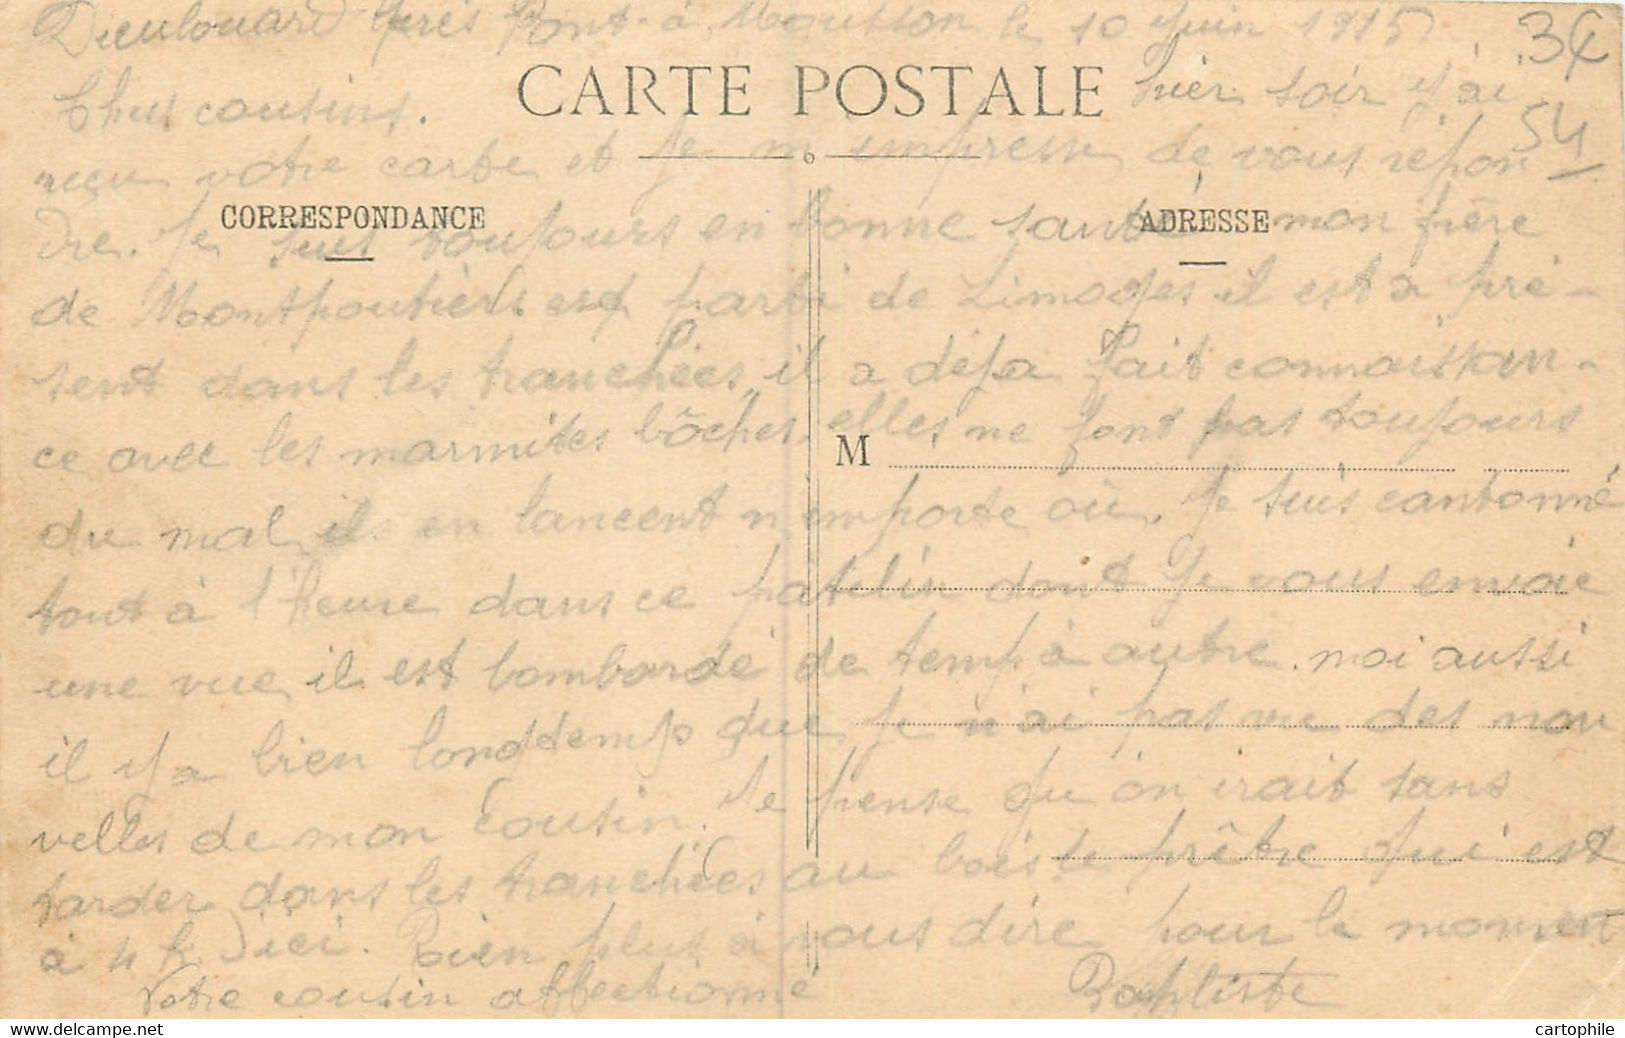 Dieulouard près Pont-à-Mousson le 10 Juin 1915
3€
54
CARTE POSTALE
CORRESPONDANCE
ADRESSE
M
Chers cousins. hier soir j'ai
reçu votre carte et je m'empresse de vous répon
dre. Je suis toujours en bonne santé mon frère
de Montpoutiers est parti de Limoges il est a pré-
sent dans les tranchées, il a déja fait connaissan-
ce avec les marmites bôches, elles ne font pas toujours
du mal, ils en lancent n'importe où. Je suis cantonné
tout à l'heure dans ce patelin dont je vous envoie
une vue, il est bombardé de temp à autre. moi aussi
il y a bien longtemp que je n'ai pas vu des nou
velles de mon cousin. Je pense qu'on irait sans
tarder dans les tranchées au bois le prêtre qui est
à 4 k d'ici. Rien plus à vous dire pour le moment
Votre cousin affectionné Baptiste
cartophile.com
cartophile.com